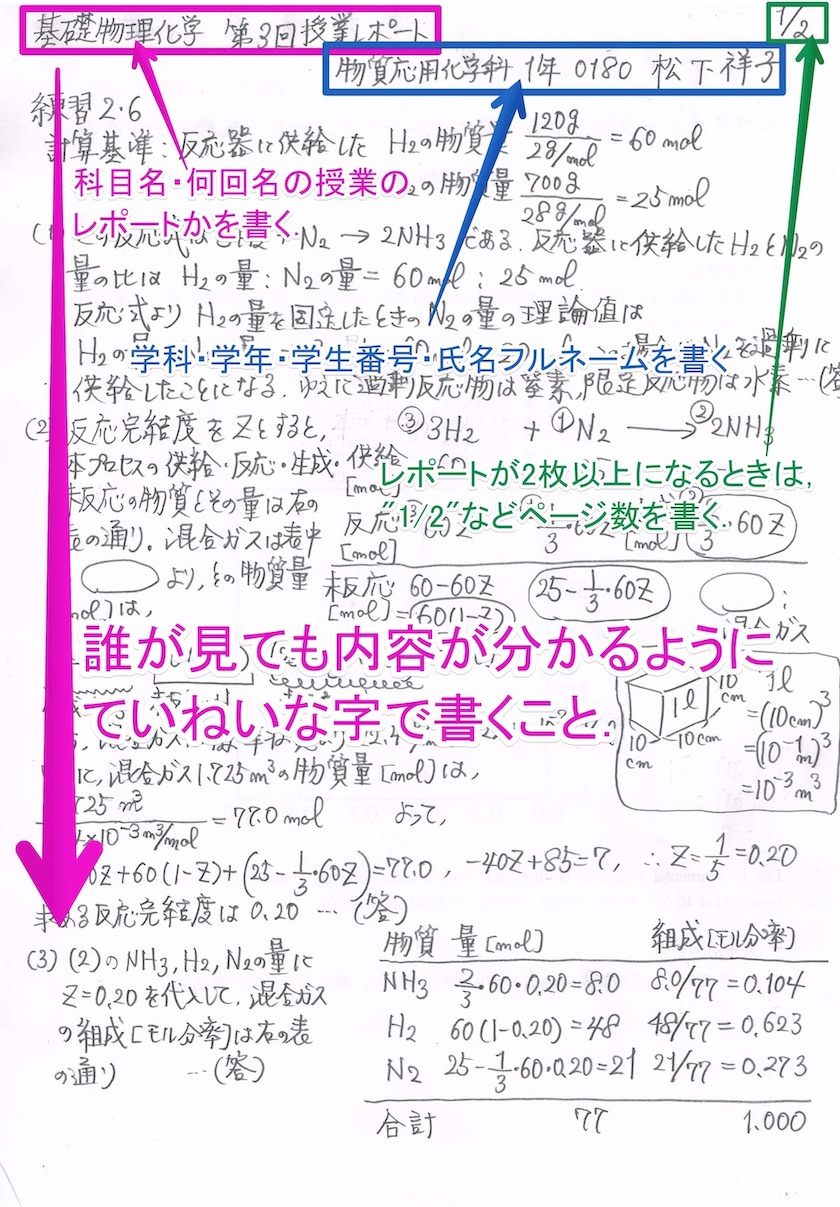 基礎物理化学 第3回授業レポート
1/2
物質応用化学科 1年 0180 松下祥子
練習2・6
計算基準:反応器に供給した H2の物質量 120g / 2g/mol = 60 mol
の物質量 700g / 28g/mol = 25 mol
科目名・何回名の授業の
レポートかを書く.
N2 → 2NH3 である. 反応器に供給したH2とN2の
量の比は H2の量:N2の量= 60mol : 25 mol.
反応式より H2の量を固定したときのN2の量の理論値は
学科・学年・学生番号・氏名フルネームを書く
供給したことになる. ゆえに過剰反応物は窒素, 限定反応物は水素
(2) 反応完結度をZとすると, ③3H2 + ①N2 → ②2NH3
本プロセスの供給・反応・生成・ 供給
[mol]
レポートが2枚以上になるときは,
"1/2"などページ数を書く.
未反応の物質とその量は右の 反応
[mol]
表の通り. 混合ガスは表中
より, その物質量 未反応 60-60Z 25-1/3・60Z
[mol] =60(1-Z)
は,
誰が見ても内容が分かるように
ていねいな字で書くこと.
10cm 10cm 10cm 1l 1l
=(10cm)³
=(10⁻¹m)³
=10⁻³m³
に, 混合ガス1.725m³の物質量[mol]は,
=77.0 mol よって,
+60(1-Z)+(25-1/3・60Z)=77.0 , -40Z+85=7, ∴ Z=1/5=0.20
反応完結度は 0.20 … (答)
(3) (2)のNH3, H2, N2の量に
Z=0.20を代入して, 混合ガス
の組成[モル分率]は右の表
の通り …(答)
物質 量[mol] 組成[モル分率]
NH3 2/3・60・0.20=8.0 8.0/77=0.104
H2 60(1-0.20)=48 48/77=0.623
N2 25-1/3・60・0.20=21 21/77=0.273
合計 77 1.000